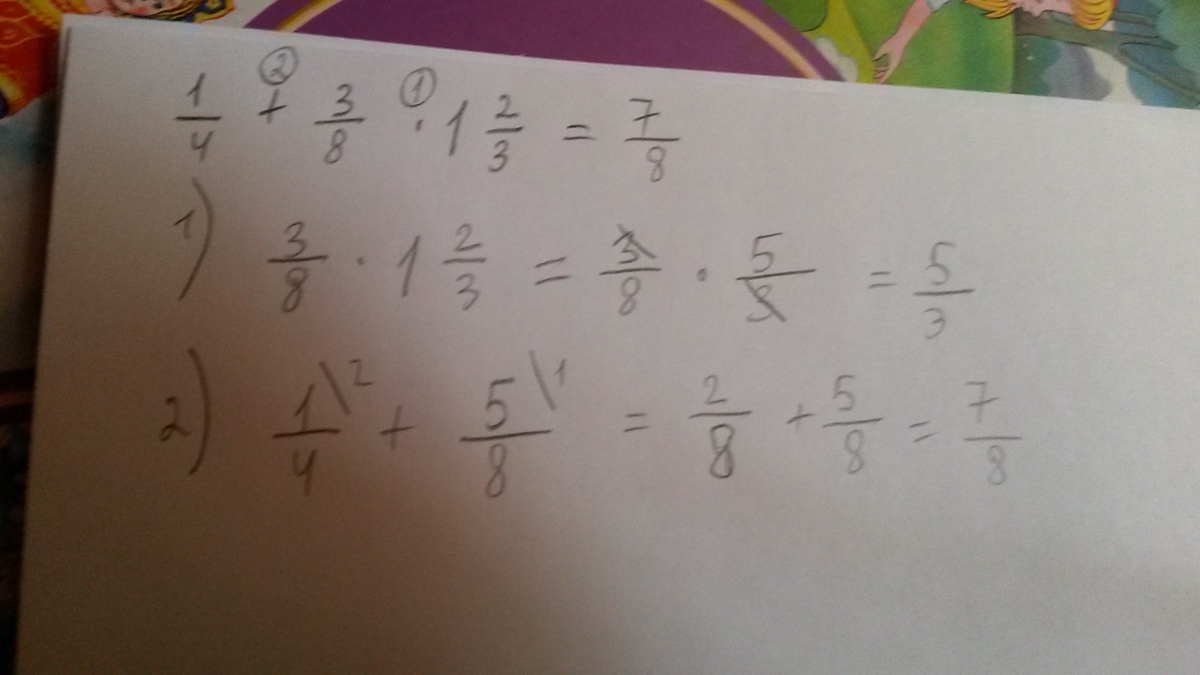 1/4 +② 3/8 ·① 1 2/3 = 7/8
1) 3/8 · 1 2/3 = 3/8 · 5/3 = 5/3
2) 1\2/4 + 5\1/8 = 2/8 + 5/8 = 7/8